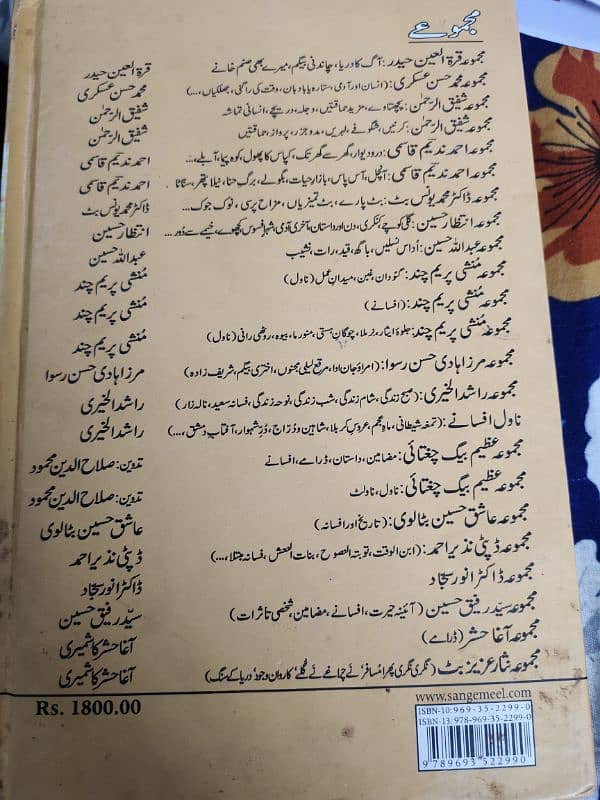 مجموعے
مجموعہ قرۃ العین حیدر: آگ کا دریا، چاندنی بیگم، میرے بھی صنم خانے قرۃ العین حیدر
مجموعہ محمد حسن عسکری: (انسان اور آدمی، ستارہ یا بادبان، وقت کی راگنی، جھلکیاں،...) محمد حسن عسکری
مجموعہ شفیق الرحمٰن: پچھتاوے، مزید حماقتیں، دجلہ، دریچے، انسانی تماشہ شفیق الرحمٰن
مجموعہ شفیق الرحمٰن: کرنیں، شگوفے، لہریں، مدوجزر، پرواز، حماقتیں شفیق الرحمٰن
مجموعہ احمد ندیم قاسمی: درودیوار، گھر سے گھر تک، کپاس کا پھول، کوہ پیما، آبلے... احمد ندیم قاسمی
مجموعہ احمد ندیم قاسمی: آنچل، آس پاس، بازارِ حیات، بگولے، برگِ حنا، نیلا پتھر، سناٹا احمد ندیم قاسمی
مجموعہ ڈاکٹر محمد یونس بٹ: بٹ پارے، بٹ تمیزیاں، مزاح پرسی، نوک جوک... ڈاکٹر محمد یونس بٹ
مجموعہ انتظار حسین: گلی کوچے، کنکری، دن اور داستان، آخری آدمی، شہرِ افسوس، کچھوے، خیمے سے دُور... انتظار حسین
مجموعہ عبداللہ حسین: اُداس نسلیں، باگھ، قید، رات، نشیب عبداللہ حسین
مجموعہ مُنشی پریم چند: گئودان، غبن، میدانِ عمل (ناول) مُنشی پریم چند
مجموعہ مُنشی پریم چند: (افسانے) مُنشی پریم چند
مجموعہ مُنشی پریم چند: جلوۂ ایثار، نرملا، چوگانِ ہستی، منورما، بیوہ، روٹھی رانی (ناول) مُنشی پریم چند
مجموعہ مرزا ہادی حسن رسوا: (امراؤ جان ادا، مرقع لیلیٰ مجنوں، اختری بیگم، شریف زادہ) مرزا ہادی حسن رسوا
مجموعہ راشد الخیری: (صبح زندگی، شام زندگی، شب زندگی، نوحہ زندگی، فسانہ سعید، نالہ زار) راشد الخیری
ناول افسانے: (تمغہ شیطانی، ماہ عجم، عروسِ کربلا، شاہین و دُرّاج، دُرِّ شہوار، آفتابِ دمشق،...) راشد الخیری
مجموعہ عظیم بیگ چغتائی: مضامین، داستان، ڈرامے، افسانے تدوین: صلاح الدین محمود
مجموعہ عظیم بیگ چغتائی: ناول، ناولٹ تدوین: صلاح الدین محمود
مجموعہ عاشق حسین بٹالوی: (تاریخ اور افسانہ) عاشق حسین بٹالوی
مجموعہ ڈپٹی نذیر احمد: (ابن الوقت، توبتہ النصوح، بنات النعش، فسانہ مبتلا،...) ڈپٹی نذیر احمد
مجموعہ ڈاکٹر انور سجاد ڈاکٹر انور سجاد
مجموعہ سیّد رفیق حسین (آئینہ حیرت، افسانے، مضامین، شخصی تاثرات) سیّد رفیق حسین
مجموعہ آغا حشر (ڈرامے) آغا حشر کاشمیری
مجموعہ نثار عزیز بٹ (نگری نگری پھرا مُسافر، نے چراغے نے گُلے، کاروانِ وجود، دریا کے سنگ) آغا حشر کاشمیری
Rs. 1800.00
www.sangemeel.com
ISBN-10: 969-35-2299-0
ISBN-13: 978-969-35-2299-0
9 789693 522990